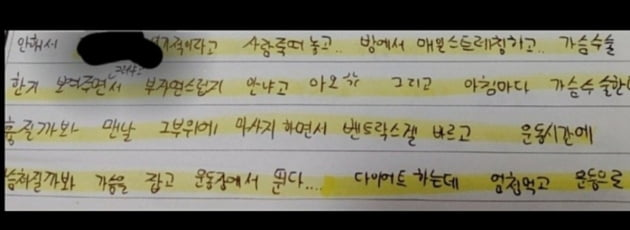 안해서 기적이라고 사람죽여 놓고.. 방에서 매일스트레칭하고.. 가슴수술
한거 보여주면서 부자연스럽지 않냐고 아오 그리고 아침마다 가슴수술한
흉질까봐 맨날 그부위에 마사지 하면서 벤트락스겔 바르고 운동시간에
쳐질까봐 가슴을 잡고 운동장에서 뛴다.... 다이어트 하는데 엄청먹고 운동으로